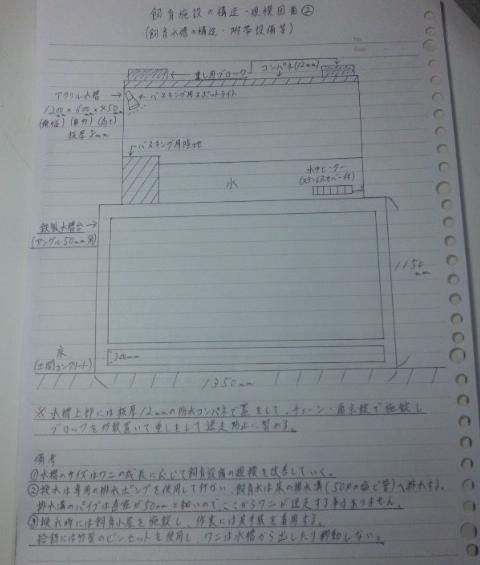 飼育施設の構造・規模図面②
(飼育水槽の構造・附帯設備等)
重し用ブロック
コンパネ(12mm)
アクリル水槽
1200×600×450m
(横幅) (奥行) (高さ)
板厚8mm
バスキング用スポットライト
バスキング用陸地
水
水中ヒーター
(ステンレスカバー付)
鉄製水槽台
(アングル50mm角)
1150
mm
床
(土間コンクリート)
300mm
1350mm
※水槽上部には板厚12mmの防水コンパネで蓋をして、チェーン・南京錠で施錠し
ブロックを数置いて重しをして逸走防止に努める。
備考
①水槽のサイズはワニの成長に応じて飼育設備の規模を改善していく。
②排水は専用の排水ポンプを使用して行ない、飼育水は床の排水溝(50mm塩ビ管)へ排水する。
排水溝のパイプは直径が50mmと細いのでここからワニが逸走する事はありません。
③換水時には飼育小屋を施錠し、作業には皮手袋を着用する。
給餌には竹製のピンセットを使用し、ワニは水槽から出したり移動しない。